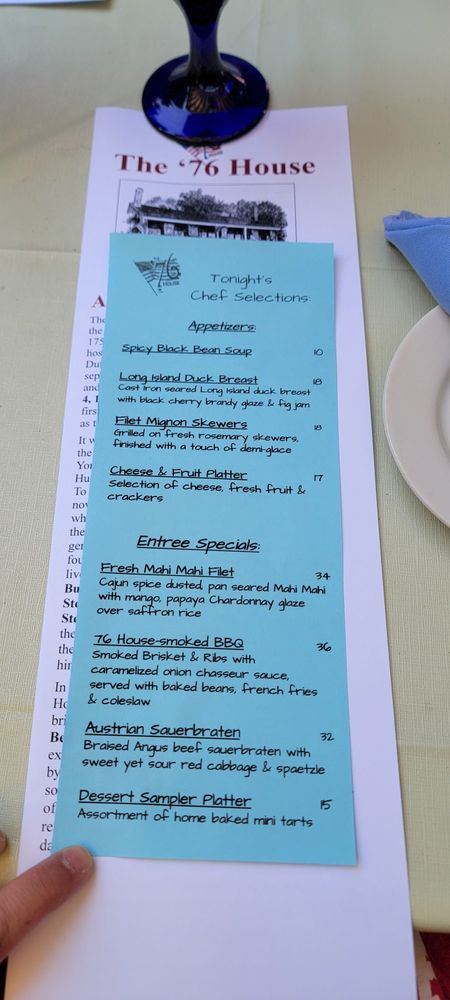 The '76 House
76
HOUSE
Tonight's
Chef Selections:
Appetizers:
Spicy Black Bean Soup 10
Long Island Duck Breast 18
Cast iron seared Long Island duck breast
with black cherry brandy glaze & fig jam
Filet Mignon Skewers 18
Grilled on fresh rosemary skewers,
finished with a touch of demi-glace
Cheese & Fruit Platter 17
Selection of cheese, fresh fruit &
crackers
Entree Specials:
Fresh Mahi Mahi Filet 34
Cajun spice dusted, pan seared Mahi Mahi
with mango, papaya Chardonnay glaze
over saffron rice
76 House-smoked BBQ 36
Smoked Brisket & Ribs with
caramelized onion chasseur sauce,
served with baked beans, french fries
& coleslaw
Austrian Sauerbraten 32
Braised Angus beef sauerbraten with
sweet yet sour red cabbage & spaetzle
Dessert Sampler Platter 15
Assortment of home baked mini tarts